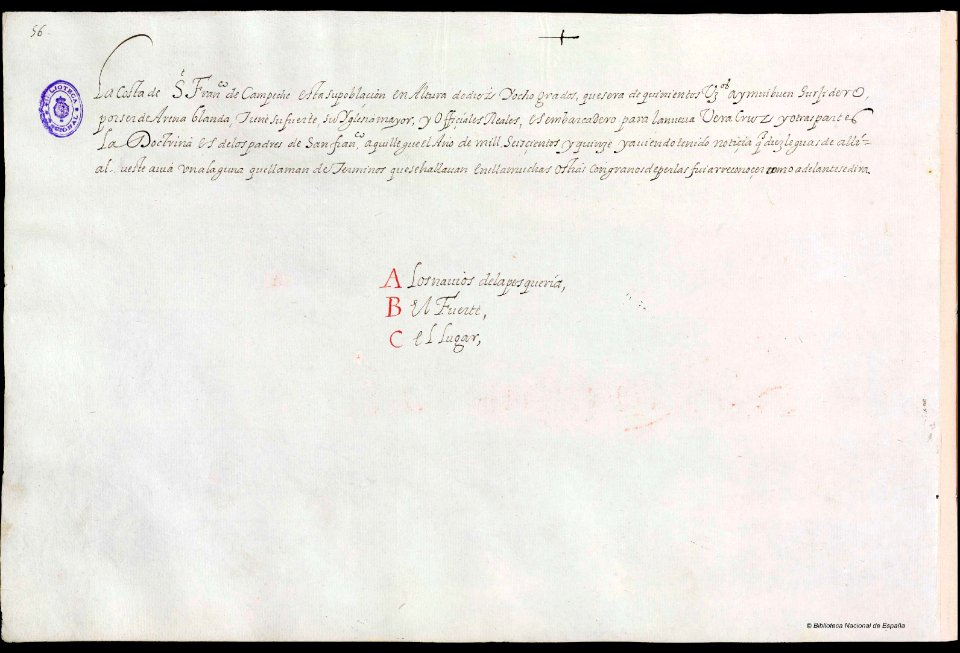 56
La Costa de S.t Fran.co de Campeche esta supoblaçion en Altura de diez Y ocho grados, que sera de quinientos Vz.os ay mui buen Surjidero,
por ser de Arena blanda, Tiene su fuerte, Su Yglesia mayor, y Offiçiales Reales, es embarcadero para la nueva Vera Cruz y otras partes
La Doctrina es de los padres de San fran.co aqui llegue el Ano de mill Seisçientos y quinze y aviendo tenido notiçia q diez leguas de alli
al ueste avia Vna laguna que llaman de Terminos que se hallavan en ella muchas Ostias con granos de perlas fui a rreconoçer como adelante se dira.
A Los navios de la pesqueria,
B El Fuerte,
C el lugar,
BIBLIOTECA NACIONAL
© Biblioteca Nacional de España